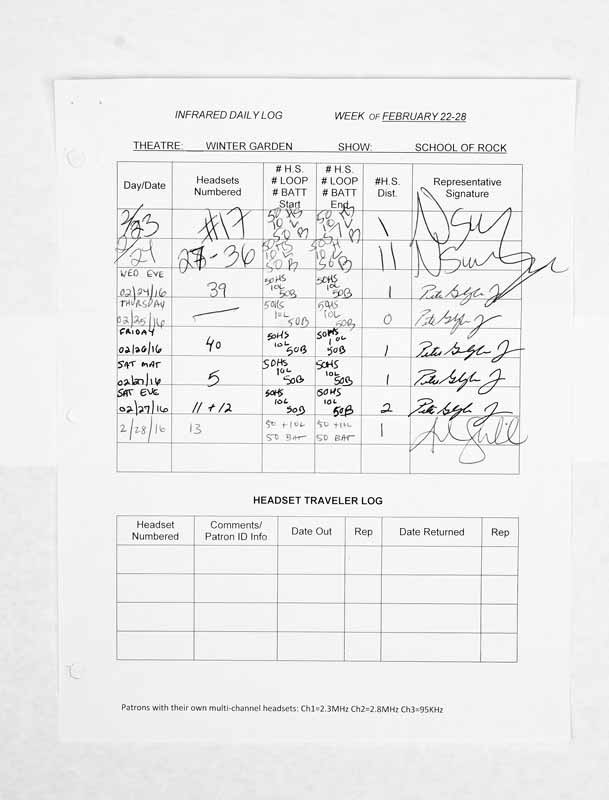 INFRARED DAILY LOG WEEK OF FEBRUARY 22-28
THEATRE: WINTER GARDEN SHOW: SCHOOL OF ROCK
Day/Date Headsets Numbered # H.S. # LOOP # BATT Start # H.S. # LOOP # BATT End #H.S. Dist. Representative Signature
2/23 #17 50 HS 10 L 50 B 50 B 1
2/24 27-36 50HS 10 L 50 B 50 H 10 L 50 B 11
WED EVE
02/24/16 39 50HS 10L 50B 50HS 10L 50B 1
THURSDAY
02/25/16 — 50HS 10L 50B 50HS 10L 50B 0
FRIDAY
02/26/16 40 50HS 10L 50B 50HS 10L 50B 1
SAT MAT
02/27/16 5 50HS 10L 50B 50HS 10L 50B 1
SAT EVE
02/27/16 11 + 12 50HS 10L 50B 50HS 10L 50B 2
2/28/16 13 50 + 10L 50 BAT 50 + 10L 50 BAT 1
HEADSET TRAVELER LOG
Headset Numbered Comments/ Patron ID Info Date Out Rep Date Returned Rep
Patrons with their own multi-channel headsets: Ch1=2.3MHz Ch2=2.8MHz Ch3=95KHz